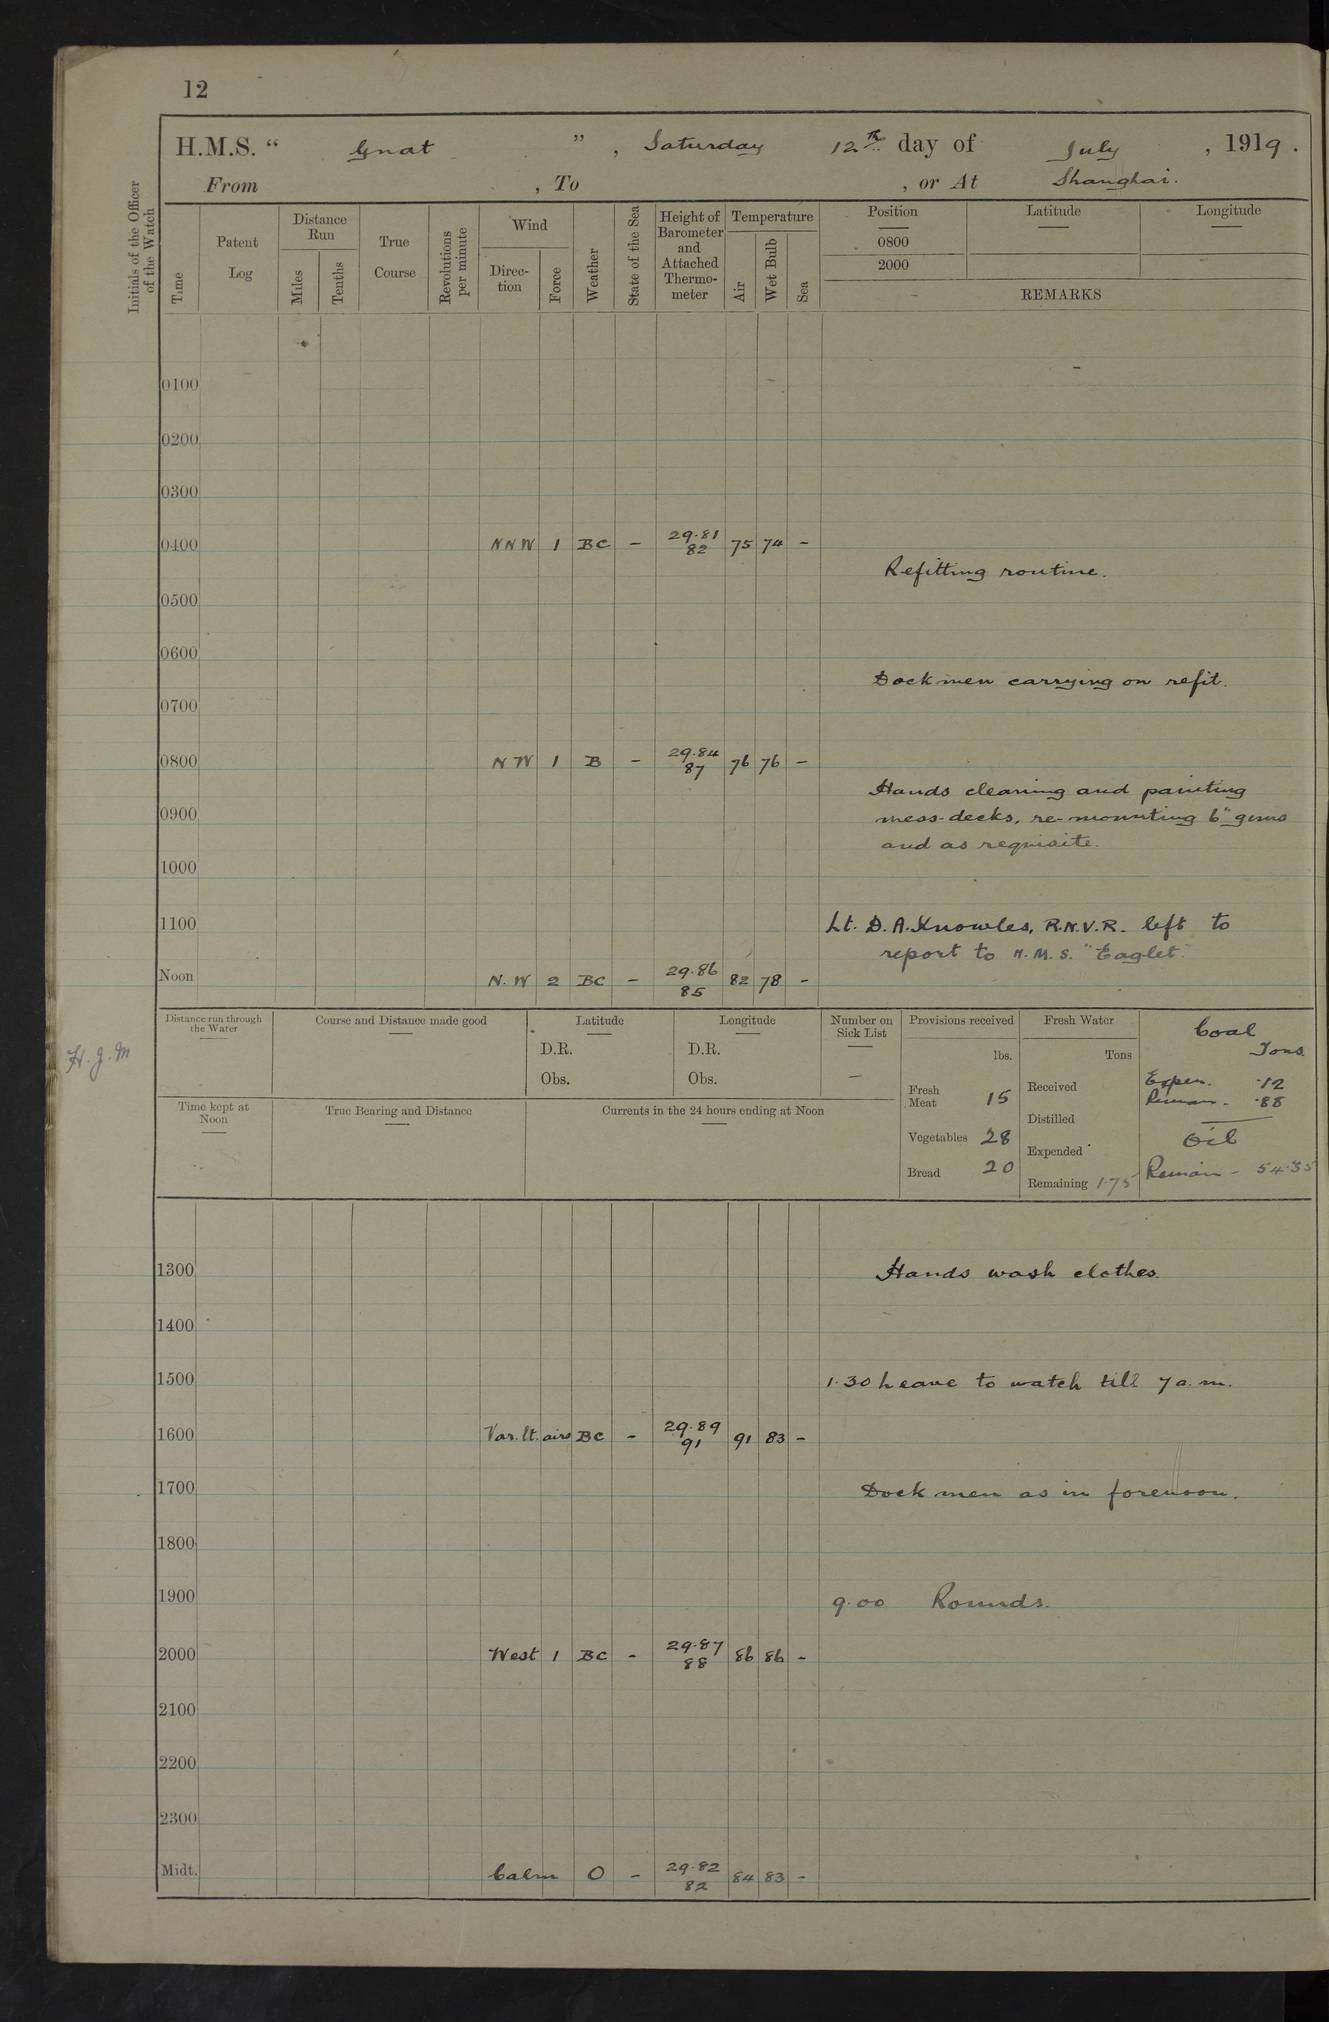 12
H.M.S. “ Gnat ” , Saturday 12th day of July , 1919 .
From , To , or At Shanghai.
Initials of the Officer of the Watch
Time
Patent Log
Distance Run
Miles
Tenths
True Course
Revolutions per minute
Wind
Direc- tion
Force
Weather
State of the Sea
Height of Barometer and Attached Thermo- meter
Temperature
Air
Wet Bulb
Sea
Position
Latitude
Longitude
0800
2000
REMARKS
0100
0200
0300
0400 NNW 1 BC - 29.81 82 75 74 -
Refitting routine.
0500
0600
Dockmen carrying on refit.
0700
0800 NW 1 B - 29.84 87 76 76 -
Hands cleaning and painting
0900 mess-decks, re-mounting 6" guns
and as requisite.
1000
1100 Lt. D. A. Knowles, R.N.V.R. left to
report to H.M.S. "Eaglet"
Noon N.W 2 BC - 29.86 85 82 78 -
Distance run through the Water
Course and Distance made good
Latitude
D.R.
Obs.
Longitude
D.R.
Obs.
Number on Sick List
—
Provisions received
lbs.
Fresh Meat 15
Vegetables 28
Bread 20
Fresh Water
Tons
Received
Distilled
Expended
Remaining 1.75
Coal
Tons.
Expen. .12
Reman - .88
Oil
Remain - 54.35
H. J. M
Time kept at Noon
True Bearing and Distance
Currents in the 24 hours ending at Noon
1300 Hands wash clothes.
1400
1500 1.30 Leave to watch till 7 a.m.
1600 Var. lt. airs BC - 29.89 91 91 83 -
1700 Dockmen as in forenoon.
1800
1900 9.00 Rounds.
2000 West 1 BC - 29.87 88 86 86 -
2100
2200
2300
Midt. Calm O - 29.82 82 84 83 -